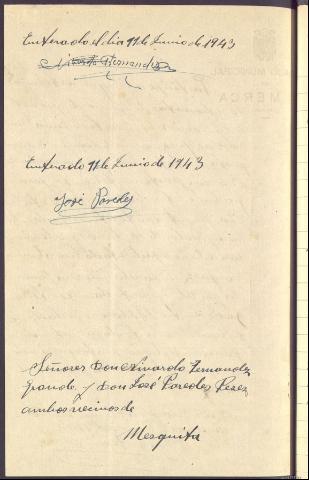 Enterado el dia 11 de Junio de 1943
Fernandez
Enterado 11 de Junio de 1943
José Paredes
Señores Don Elinardo Fernandez
grande y Don José Paredes Perez
ambos vecinos de
Mezquita